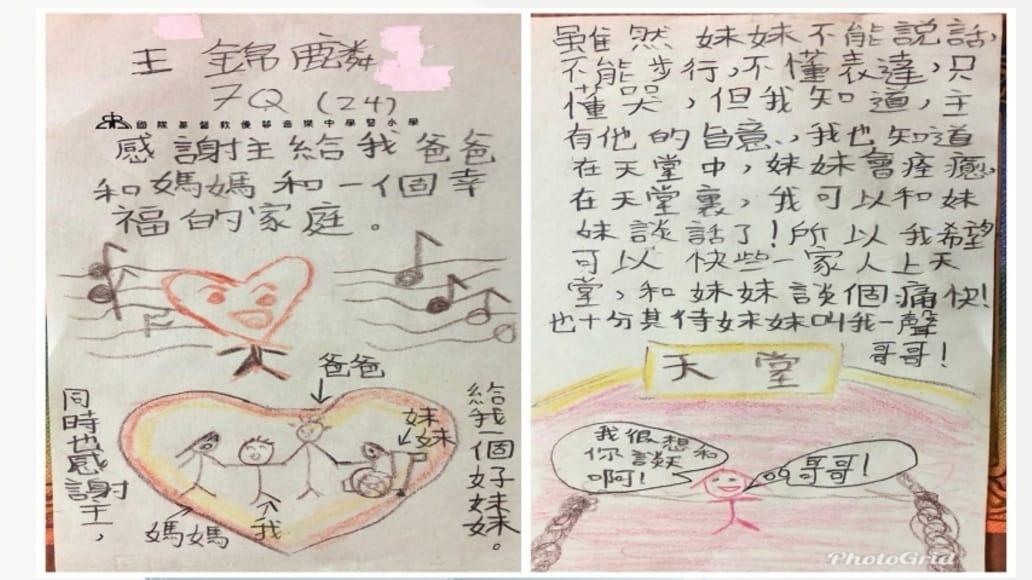 王錦麟
7Q (24)
國際基督教優質音樂中學暨小學
感謝主給我爸爸
和媽媽和一個幸
福的家庭。
爸爸
同時也感謝主，
妹妹
媽媽
我
給我一個好妹妹。
雖然妹妹不能説話，
不能步行，不懂表達，只
懂哭，但我知道，主
有他的旨意，我也知道
在天堂中，妹妹會痊癒，
在天堂裏，我可以和妹
妹談話了！所以我希望
可以快些一家人上天
堂，和妹妹談個痛快！
也十分其待妹妹叫我一聲
哥哥！
天堂
我很想和
你談天
啊！
哥哥！
PhotoGrid